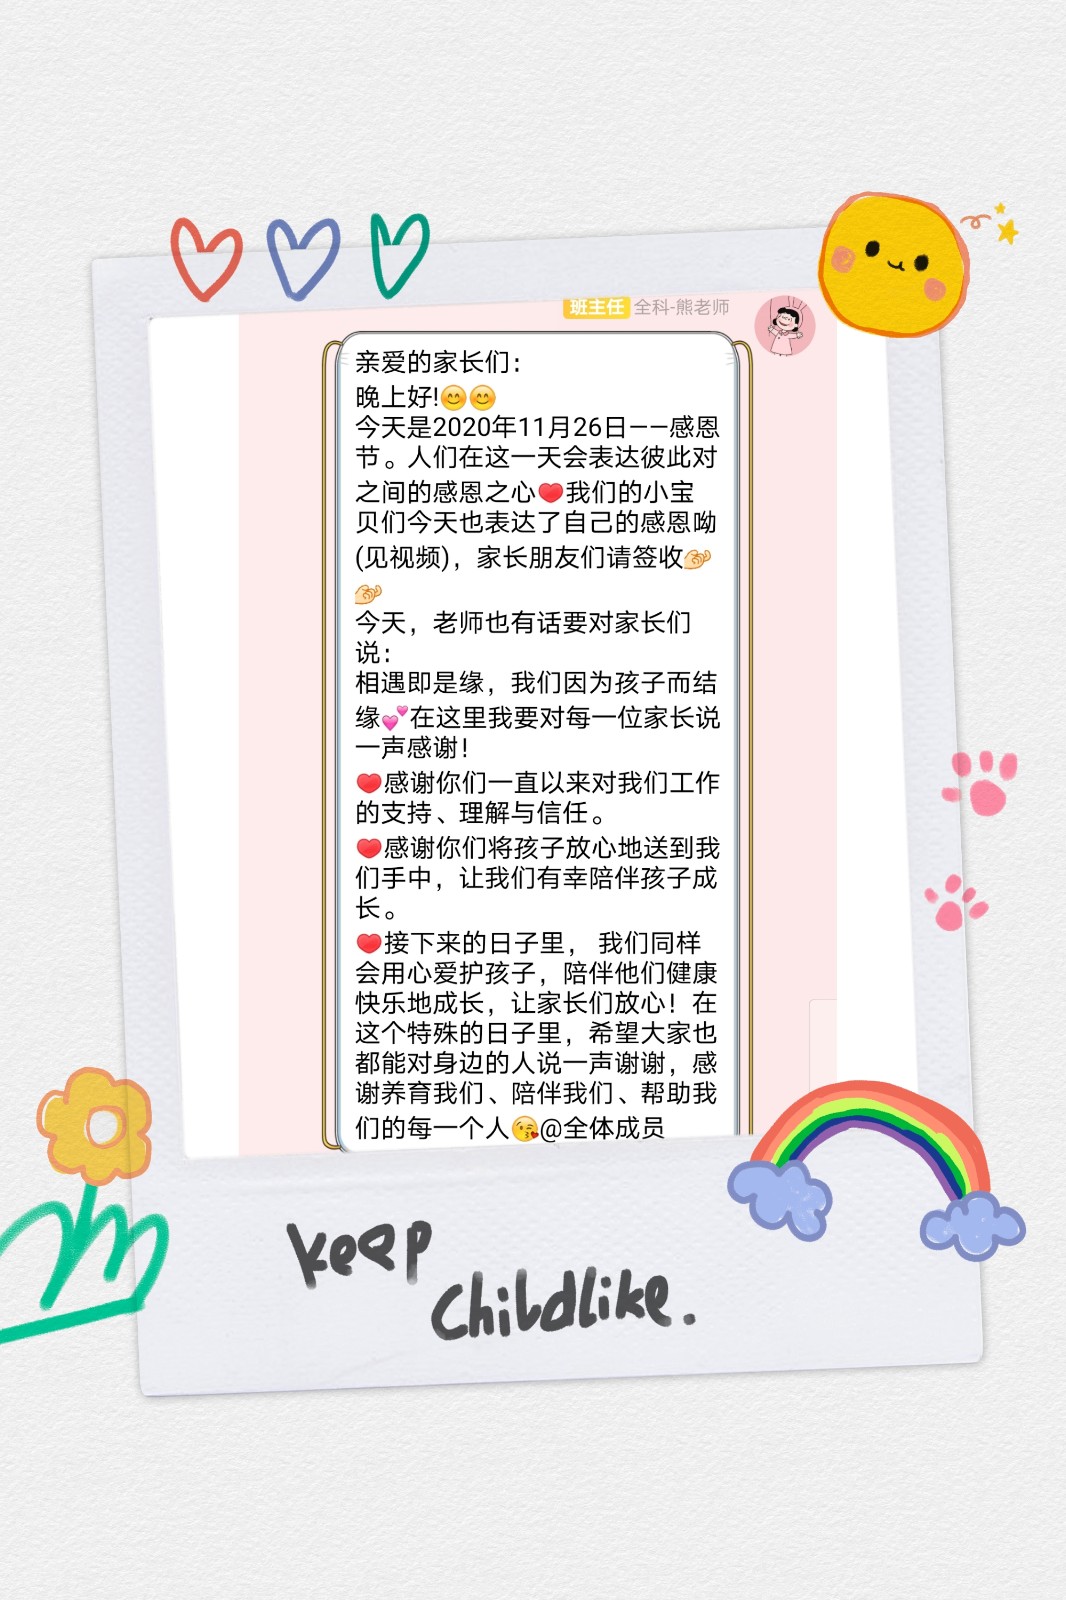 班主任 全科-熊老师
亲爱的家长们：
晚上好!😊😊
今天是2020年11月26日——感恩
节。人们在这一天会表达彼此对
之间的感恩之心❤我们的小宝
贝们今天也表达了自己的感恩呦
(见视频)，家长朋友们请签收🫴
🫴
今天，老师也有话要对家长们
说：
相遇即是缘，我们因为孩子而结
缘💕在这里我要对每一位家长说
一声感谢！
❤感谢你们一直以来对我们工作
的支持、理解与信任。
❤感谢你们将孩子放心地送到我
们手中，让我们有幸陪伴孩子成
长。
❤接下来的日子里， 我们同样
会用心爱护孩子，陪伴他们健康
快乐地成长，让家长们放心！在
这个特殊的日子里，希望大家也
都能对身边的人说一声谢谢，感
谢养育我们、陪伴我们、帮助我
们的每一个人😘@全体成员
keep
Childlike.